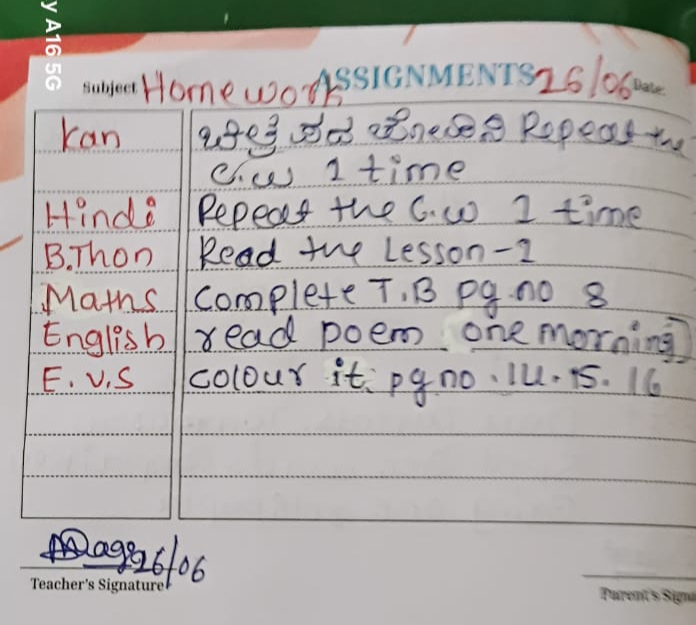 y A16 5G
Subject Homework ASSIGNMENTS 26/06 Date:
Kan ಪದ Repeat the
C.W 1 time
Hindi Repeat the C.W 1 time
B.Thon Read the Lesson-1
Maths Complete T.B pg no 8
English read poem one morning
E.V.S colour it pg no . 14. 15. 16
26/06
Teacher's Signature
Parent's Signa